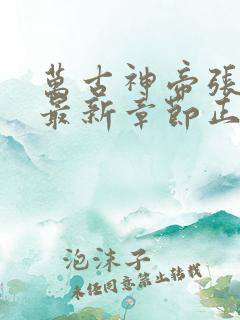 萬古神帝張
最新章節正
泡沫子
未任同意禁止转载